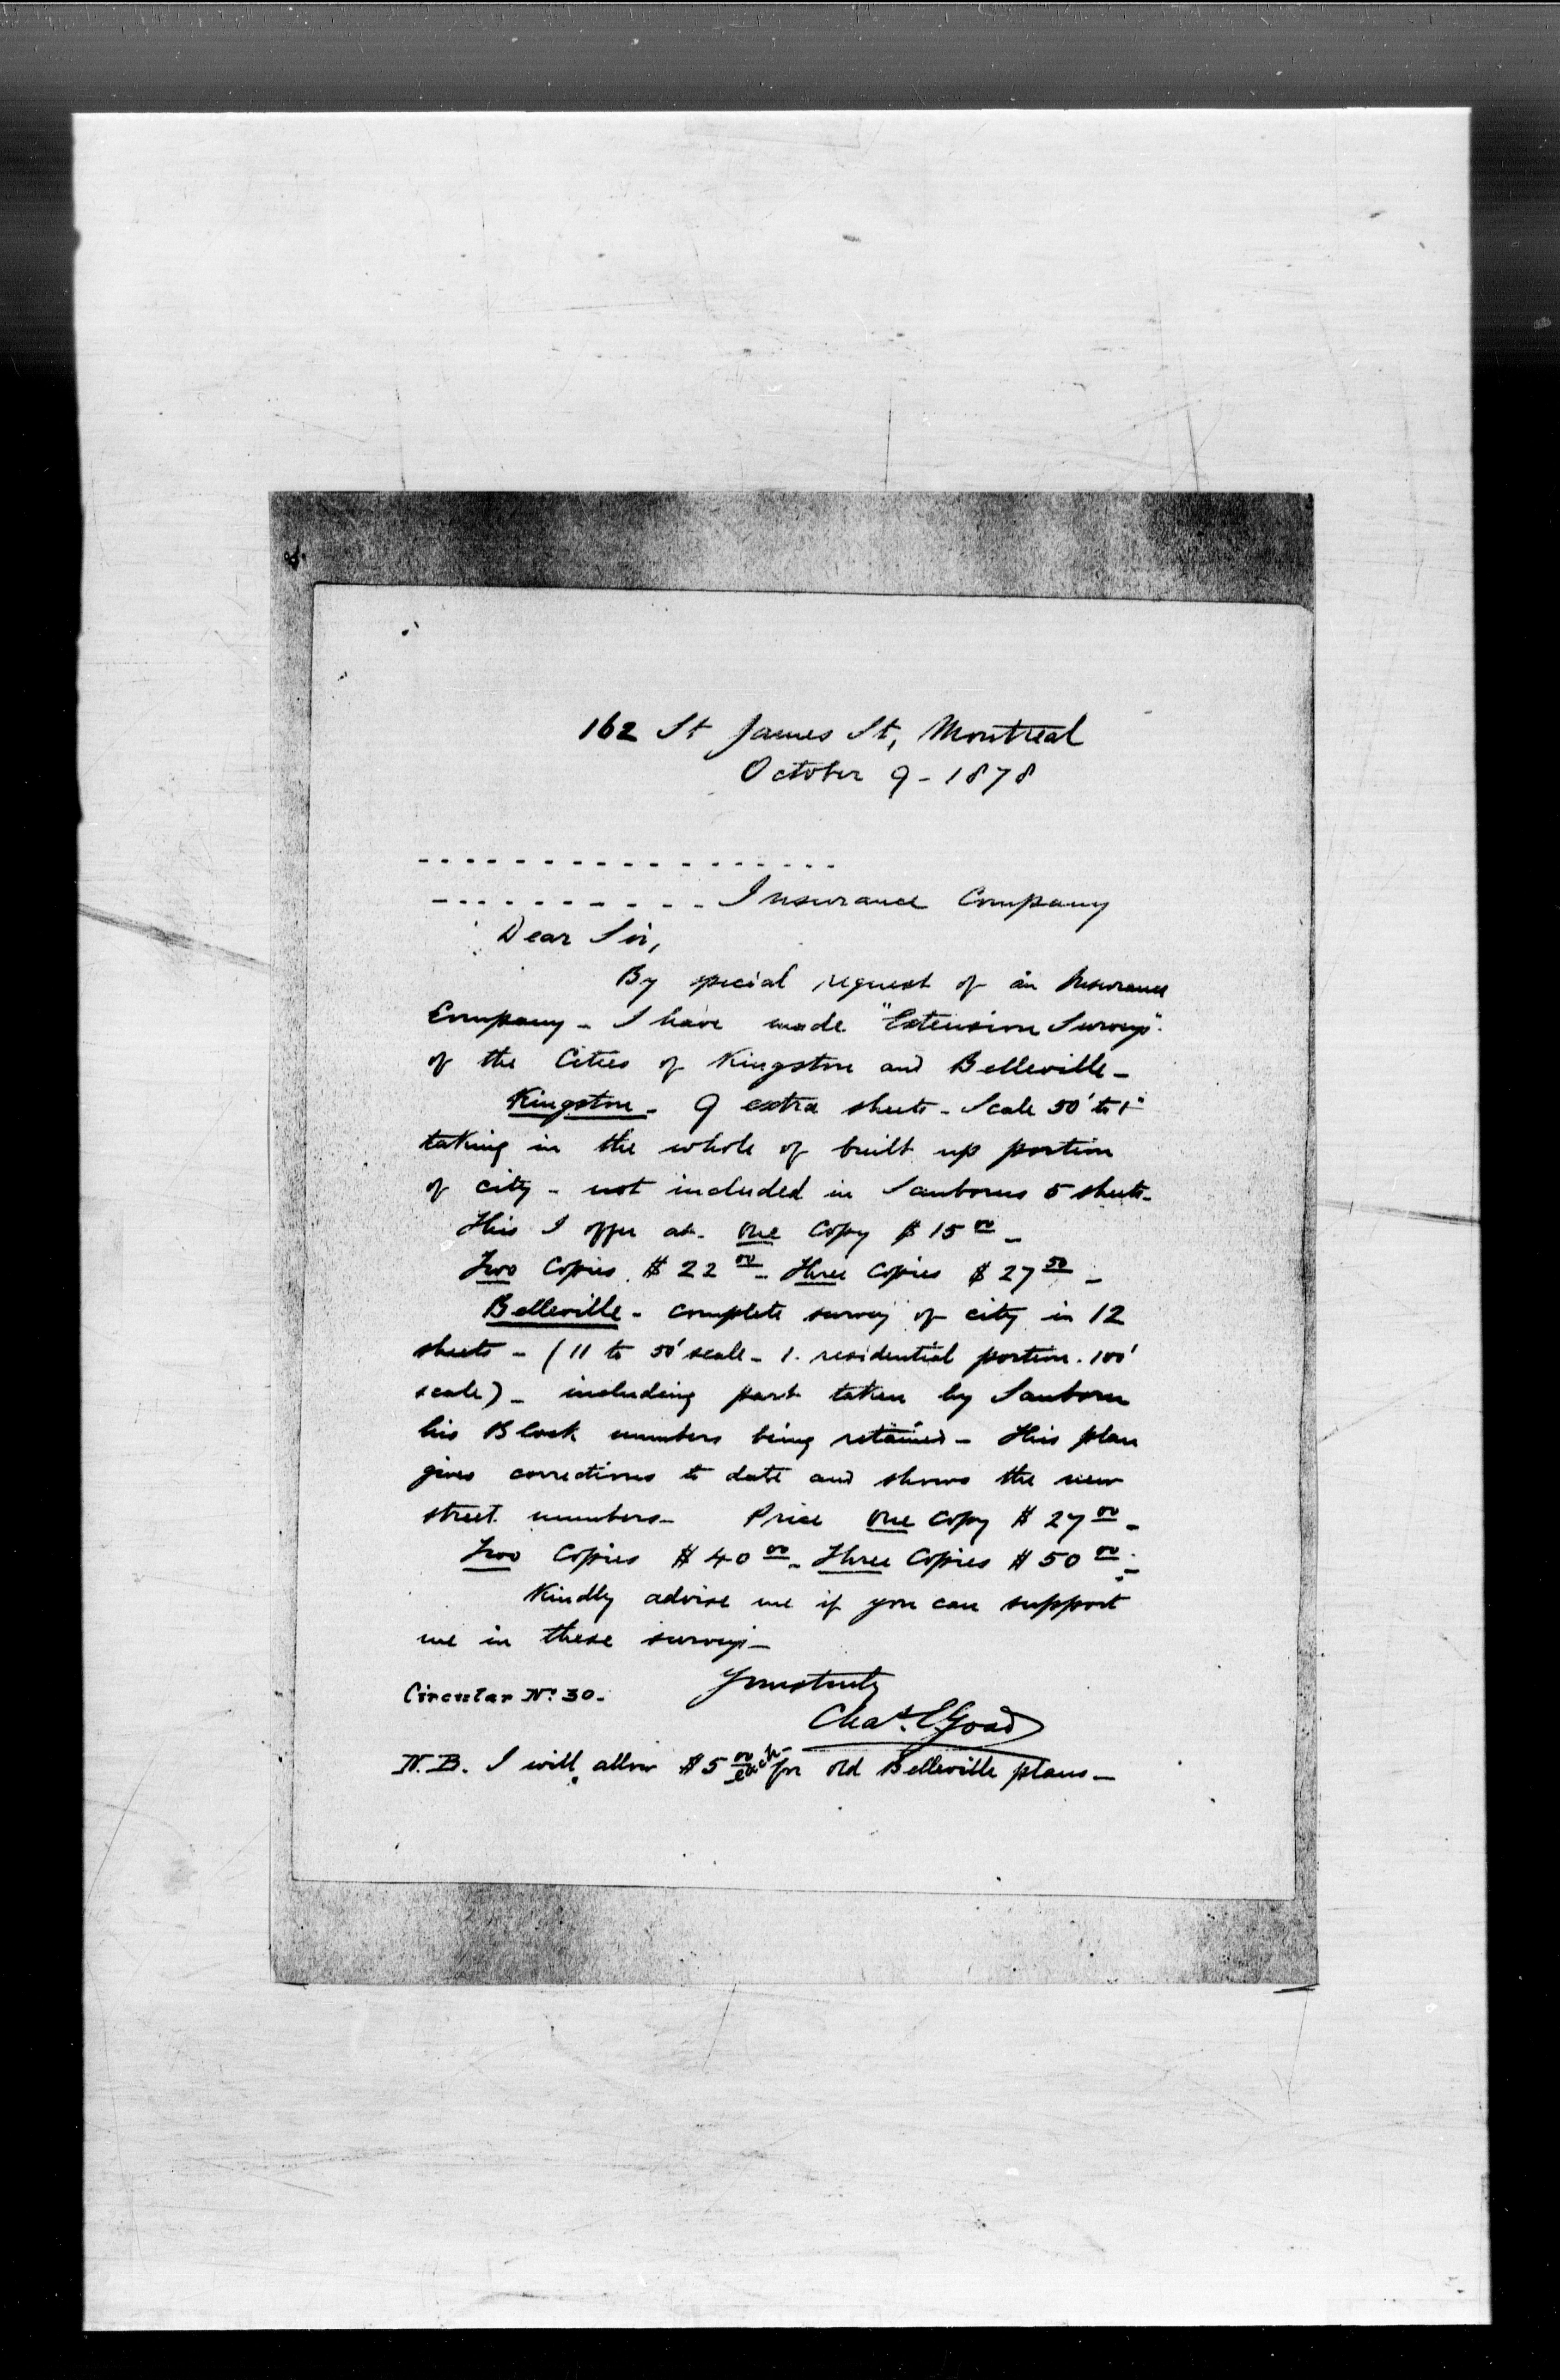 162 St James St, Montreal
October 9 - 1878
- - - - - - - - - - - - - - - - - -
- - - - - - - - - - - Insurance Company
Dear Sir,
By special request of an Insurance
Company - I have made "Extension Surveys"
of the Cities of Kingston and Belleville -
Kingston - 9 extra sheets - Scale 50' to 1"
taking in the whole of built up portion
of city - not included in Sanborns 5 sheets -
This I offer at - One Copy $15 00 -
Two Copies $22 00 - Three Copies $27 50 -
Belleville - complete survey of city in 12
sheets - (11 to 50' scale - 1. residential portion. 100'
scale) - including part taken by Sanborn
his Block numbers being retained - This plan
gives corrections to date and shows the new
street numbers - Price One Copy $27 00 -
Two Copies $40 00 - Three Copies $50 00 -
Kindly advise me if you can support
me in these surveys -
Yours truly
Circular No. 30.
Chas. E. Goad
N.B. I will allow $5 00 each for old Belleville plans -